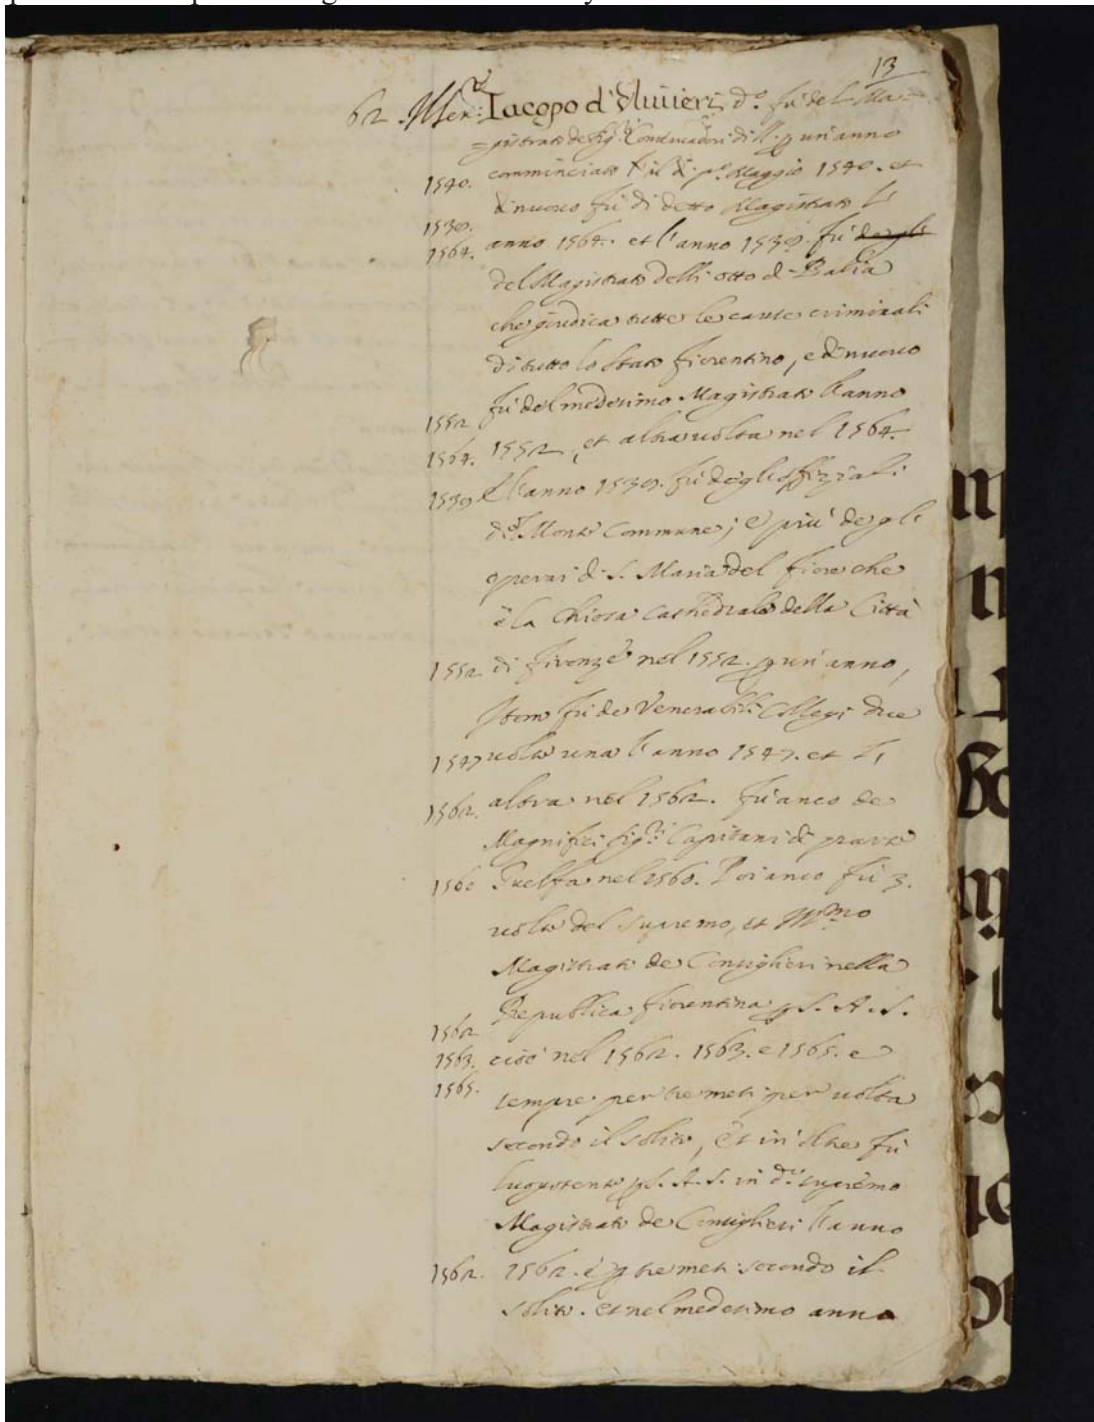 13
62. Mser: Iacopo d'Uluieri d.º fu del Ma=
=gistrato de sig.ri Conseruadori di un'anno
1540. comminciato il di p.º Maggio 1540. et
di nuouo fu di detto Magistrato l'
1539.
1564. anno 1564. et l'anno 1539. fu degli
del Magistrato delli otto di Balia
che giudica tutte le cause criminali
di tutto lo stato fiorentino, e di nuouo
fu del medesimo Magistrato l'anno
1552
1564. 1552, et altra uolta nel 1564.
1539 E l'anno 1539. fu degli offiziali
di Monte Commune; e più degli
operai di S. Maria del fiore che
è la chiesa Cathedrale della Città
1552 di firenze nel 1552. p un'anno,
Item fu de Venerabili Collegi due
1547 uolte una l'anno 1547. et l'
1562. altra nel 1562. fu anco de
Magnifici sig.ri Capitani di parte
1560 Guelfa nel 1560. Poi anco fu 3.
uolte del supremo, et
Magistrato de Consiglieri nella
Republica fiorentina p S. A. S.
1562
1563. cioè nel 1562. 1563. e 1565. e
1565. sempre per tre mesi per uolta
secondo il solito, Et in oltre fu
lugotente p S. A. S. in d.º supremo
Magistrato de Consiglieri l'anno
1562. 1562. e p tre mesi secondo il
solito. et nel medesimo anno